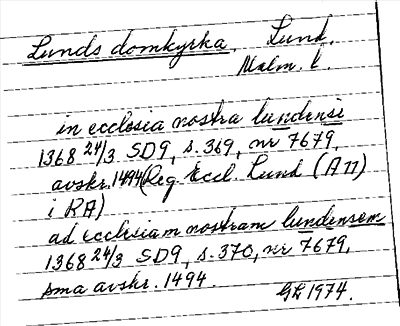 Lunds domkyrka. Lund.
Malm. l.
in ecclesia nostra lundensi
1368 24/3 SD9, s. 369, nr 7679,
avskr. 1494 (Reg. Eccl. Lund (A 11)
i RA)
ad ecclesiam nostram lundensem
1368 24/3 SD9, s. 370, nr 7679,
sma avskr. 1494.
GL 1974.